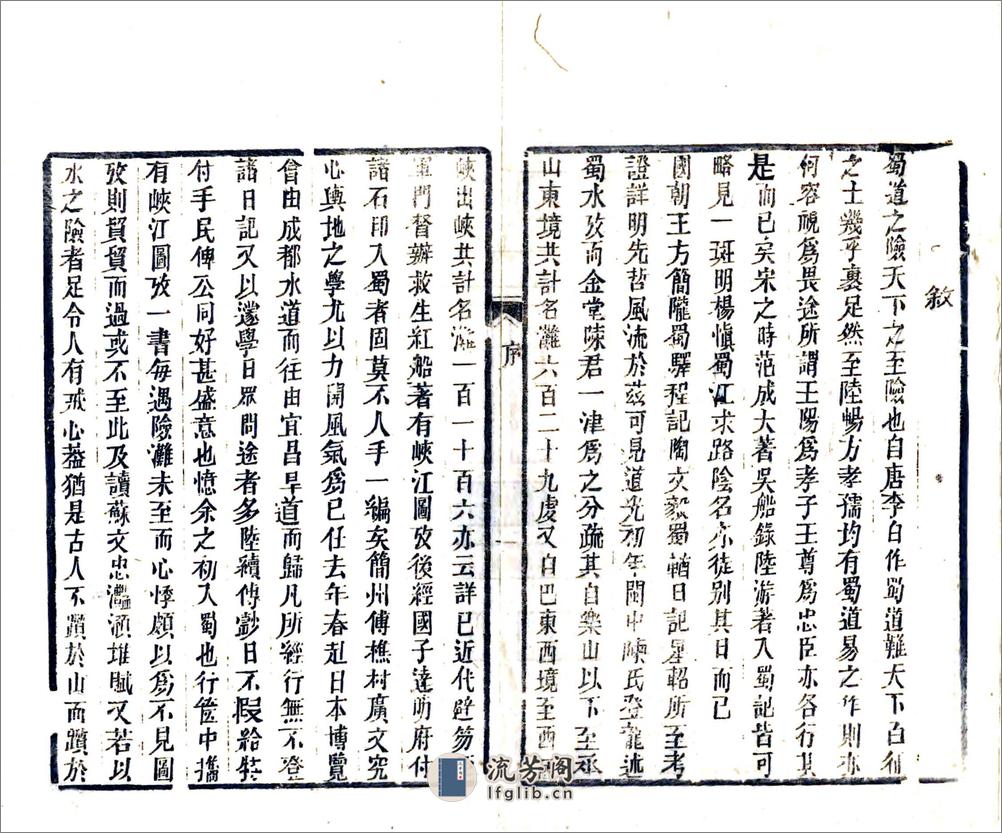 敘
蜀道之險天下之至險也自唐李白作蜀道難天下百行
之士幾乎裹足然至陸暢方孝孺均有蜀道易之作則亦
何容視爲畏途所謂王陽爲孝子王尊爲忠臣亦各行其
是而已矣宋之時范成大著吳船錄陸游著入蜀記皆可
略見一斑明楊愼蜀江求路陰名亦徒別其日而已
國朝王方簡隴蜀驛程記陶文毅蜀輶日記星軺所至考
證詳明先哲風流於茲可見道光初年閬中陳氏登龍述
蜀水攷而金堂陳君一津爲之分疏其自樂山以下至巫
山東境共計名灘六百二十九處又自巴東西境至西
峽出峽共計名灘一百一十百六亦云詳已近代
軍門督辦救生紅船著有峽江圖攷後經國子達明府付
諸石印入蜀者固莫不人手一編矣簡州傅樵村廣文究
心輿地之學尤以力開風氣爲已任去年春赴日本博覽
會由成都水道而往由宜昌旱道而歸凡所經行無不登
諸日記又以遊學日眾問途者多陸續傳鈔日不暇給裝
付手民俾公同好甚盛意也憶余之初入蜀也行篋中攜
有峽江圖攷一書每遇險灘未至而心悸顧以爲不見圖
攷則貿貿而過或不至此及讀蘇文忠灩澦堆賦又若以
水之險者足令人有戒心蓋猶是古人不躓於山而躓於
序
流芳阁
lfglib.cn